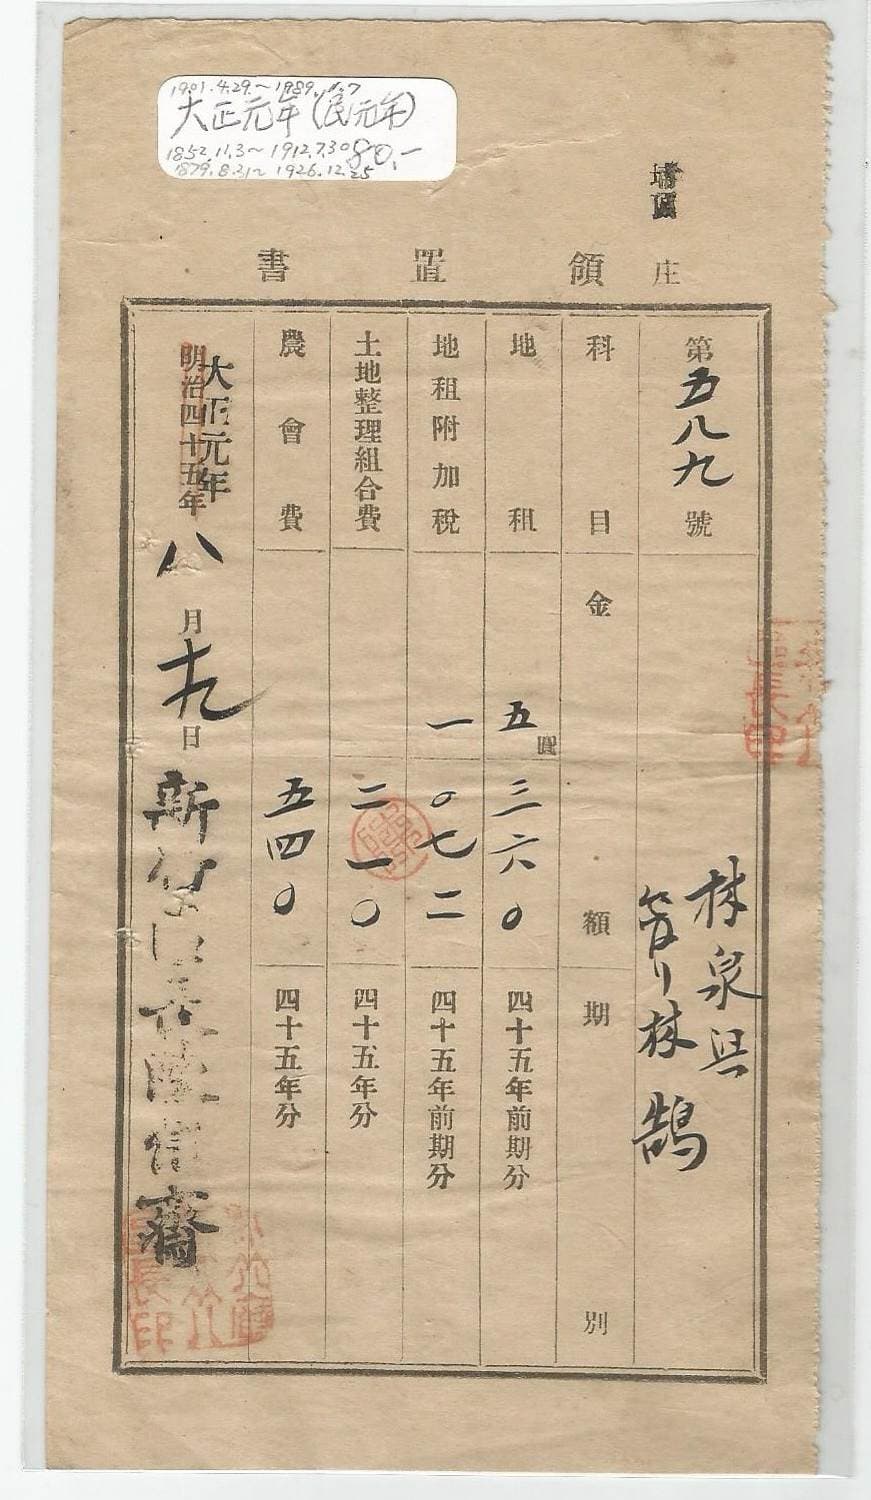 1901.4.29.~1989.1.7
大正元年(民元年)
1852.11.3~1912.7.30 80.-
1879.8.31~1926.12.25
埔頂
庄
領置書
第五八九號
林泉興
管リ林鵠
科目 金額 期別
地租 五圓三六〇 四十五年前期分
地租附加稅 一〇七二 四十五年前期分
土地整理組合費 二一〇 四十五年分
農會費 五四〇 四十五年分
大正元年
明治四十五年
八月十九日
新竹區長陳信齋